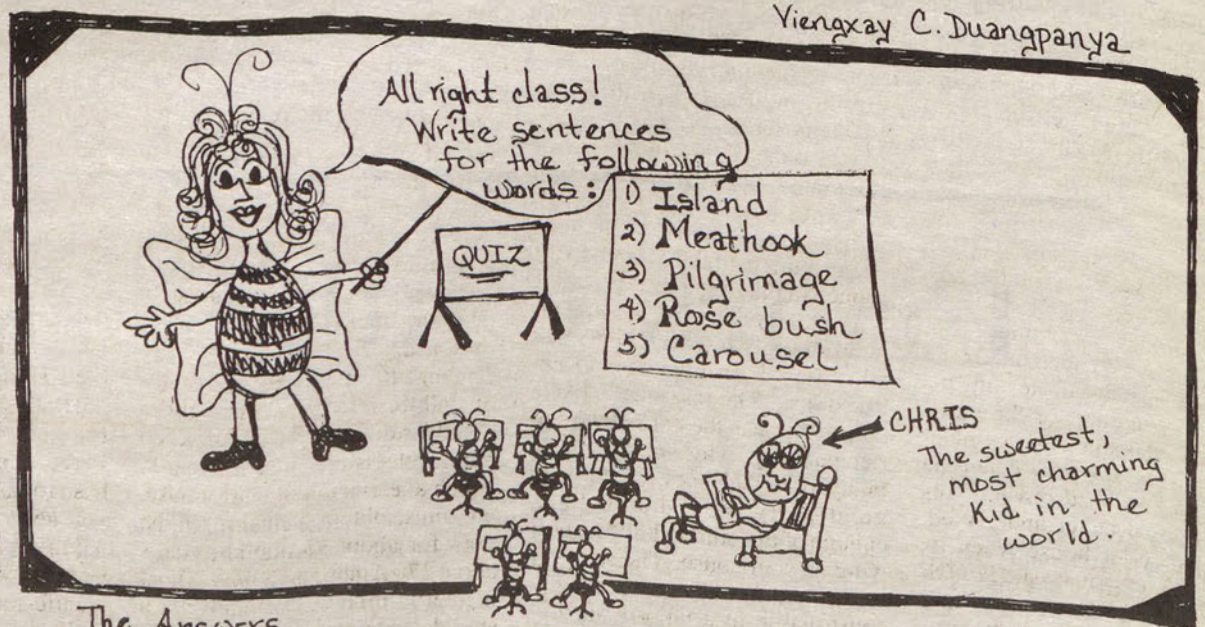 Viengxay C. Duangpanya
All right class!
Write sentences
for the following
words:
QUIZ
1) Island
2) Meathook
3) Pilgrimage
4) Rose bush
5) Carousel
CHRIS
The sweetest,
most charming
Kid in the
world.
The Answers